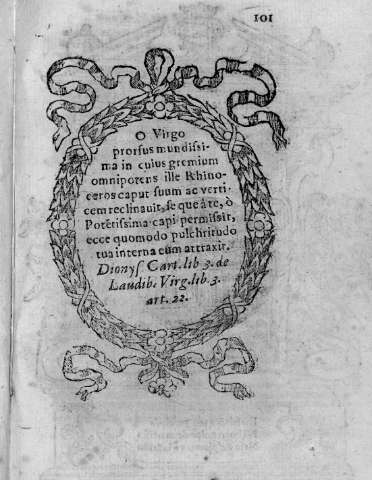 101
O Virgo
prorsus mundissi-
ma in cuius gremium
omnipotens ille Rhino-
ceros caput suum ac verti-
cem reclinauit, se que à te, ò
Potētissima capi permissit,
ecce quomodo pulchritudo
tua interna eum attraxit.
Dionys. Cart. lib 3. de
Laudib. Virg. lib. 3.
art. 22.